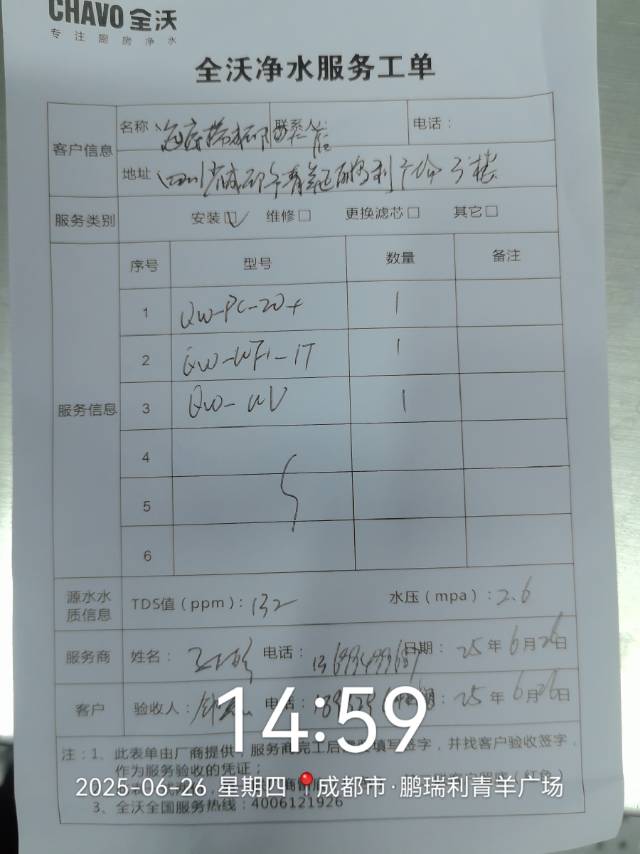 CHAVO 全沃
专注厨房净水
全沃净水服务工单
客户信息
名称 联系人 电话：
地址 四川省成都市青羊区鹏瑞利广场 3楼
服务类别 安装☑ 维修□ 更换滤芯□ 其它□
服务信息
序号 型号 数量 备注
1 QW-PC-20+ 1
2 QW-WF1-1T 1
3 QW-UV 1
4
5
6
源水水质信息 TDS值（ppm）：132 水压（mpa）：2.6
服务商 姓名： 电话： 日期：25年6月26日
客户 验收人： 电话： 25年6月26日
14:59
注：1、此表单由厂商提供，服务商完工后 填写签字，并找客户验收签字，
作为服务验收的凭证；
2025-06-26 星期四 成都市·鹏瑞利青羊广场
3、全沃全国服务热线：4006121926